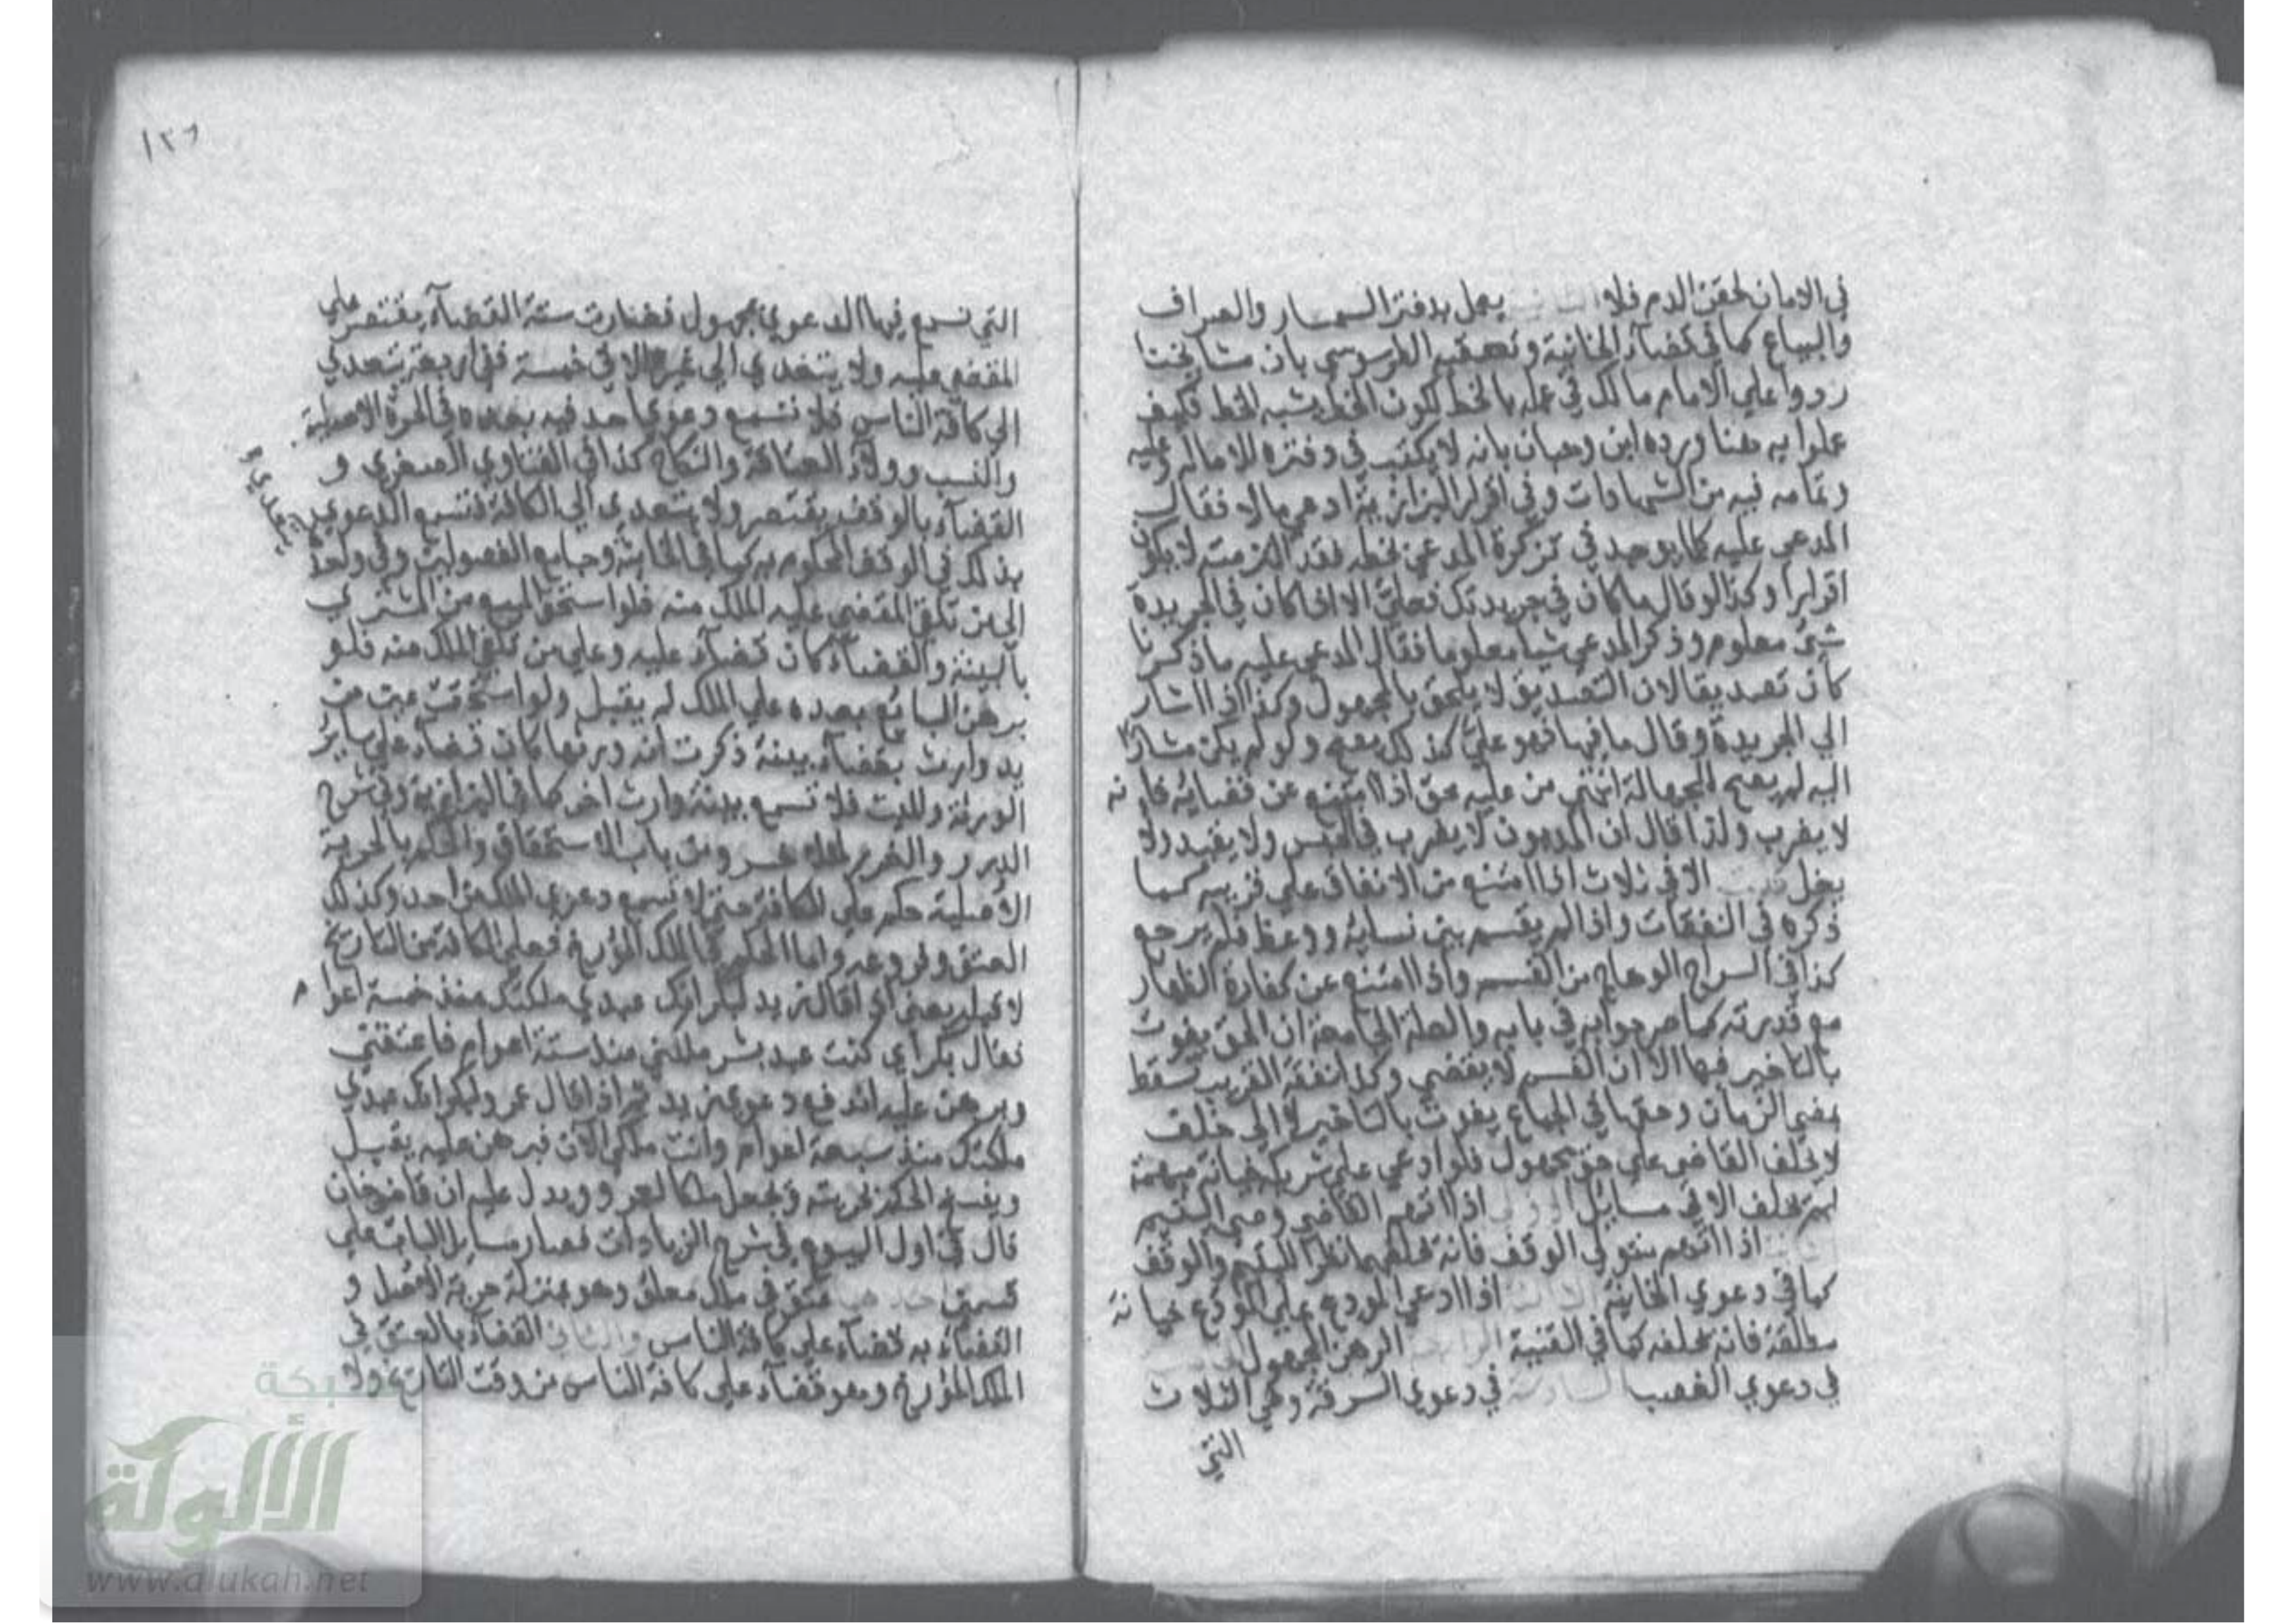 في الامان لحقن الدم فلا الثانية يعمل بدفتر السمسار والصراف
والبياع كما في قضاء الخانية وتعقبه الطرسوسي بان مشايخنا
ردوا علي الامام مالك في عمله بالخط لكون الخط يشبه الخط فكيف
عملوا به هنا ورده ابن وهبان بانه لا يكتب في دفتره الا ماله وعليه
وتمامه فيه من الشهادات وفي اقرار البزازية ادعي مالا فقال
المدعي عليه كلما يوجد في تذكرة المدعي بخطه فقد التزمته لا يكون
اقرارا وكذا لو قال ما كان في جريدتك فعليّ الا اذا كان في الجريدة
شئ معلوم وذكر المدعي شيا معلوما فقال المدعي عليه ما ذكرنا
كان تصديقا لان التصديق لا يلحق بالمجهول وكذا اذا اشار
الي الجريدة وقال ما فيها فهو عليّ كذلك يصح ولو لم يكن مشارا
اليه لم يصح للجهالة انتهي من عليه حق اذا امتنع عن قضائه فانه
لا يضرب ولذا قال ان المديون لا يضرب في الحبس ولا يقيد ولا
يغل قلت الا في ثلاث اذا امتنع من الانفاق علي قريبه كما
ذكره في النفقات واذا لم يقسم بين نسائه ووعظ فلم يرجع
كذا في السراج الوهاج من القسم واذا امتنع عن كفارة الظهار
مع قدرته كما صرحوا به في بابه والعلة الجامعة ان الحق يفوت
بالتاخير فيها الا ان القسم لا يقضي وكذا نفقة القريب تسقط
بمضي الزمان وحقها في الجماع يفوت بالتاخير لا الي خلف
لا يحلف القاضي علي حق مجهول فلو ادعي علي شريكه خيانة مبهمة
لم يحلف الا في مسايل الاولي اذا اتهم القاضي وصي اليتيم
الثانية اذا اتهم متولي الوقف فانه يحلفهما نظرا لليتيم والوقف
كما في دعوي الخانية الثالثة اذا ادعي المودع علي المودع خيانة
مطلقة فانه يحلفه كما في القنية الرابعة الرهن المجهول الخامسة
في دعوي الغصب السادسة في دعوي السرقة وهي الثلاث
التي
١٢٦
التي تسمع فيها الدعوي بمجهول فصارت ستة القضاء يقتصر علي
المقضي عليه ولا يتعدي الي غيره الا في خمسة ففي اربعة يتعدي
الي كافة الناس فلا تسمع دعوي احد فيه بعده في الحرة الاصلية
والنسب وولاء العتاقة والنكاح كذا في الفتاوي الصغري و
القضاء بالوقف يقتصر ولا يتعدي الي الكافة فتسمع الدعوي
بذلك في الوقف المحكوم به كما في الخانية وجامع الفصولين وفي واحدة يتعدي
الي من تلقي المقضي عليه الملك منه فلو استحق المبيع من المشتري
بالبينة والقضاء كان قضاء عليه وعلي من تلقي الملك منه فلو
برهن البائع بعده علي الملك لم يقبل ولو استحقت عين من
يد وارث بقضاء ببينة ذكرت انه ورثها كان قضاء علي ساير
الورثة والميت فلا تسمع بينة وارث اخر كما في البزازية وفي شرح
الدرر والغرر لملا خسرو من باب الاستحقاق والحكم بالحرية
الاصلية حكم علي الكافة حتي لا تسمع دعوي الملك من احد وكذلك
العتق وفروعه واما الحكم في الملك المؤرخ فعلي الكافة من التاريخ
لا قبله يعني اذا قال زيد لبكر انك عبدي ملكتك منذ خمسة اعوام
فقال بكر اي كنت عبد بشر ملكني منذ ستة اعوام فاعتقني
وبرهن عليه اندفع دعوي زيد ثم اذا قال عمرو لبكر انك عبدي
ملكتك منذ سبعة اعوام وانت ملكي الان فبرهن عليه يقبل
ويفسخ الحكم بحريته ويجعل ملكا لعمرو ويدل عليه ان قاضيخان
قال في اول البيوع في شرح الزيادات فصار مسايل الباب علي
قسمين احدهما عتق في ملك مطلق وهو بمنزلة حرية الاصل و
القضاء به قضاء علي كافة الناس والثاني القضاء بالعتق في
الملك المؤرخ وهو قضاء علي كافة الناس من وقت التاريخ ولا
شبكة
الألوكة
www.alukah.net